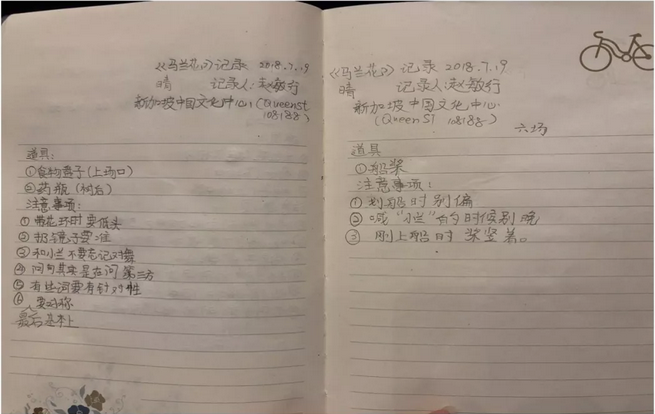 《马兰花》记录 2018.7.19
晴 记录人:赵敏行
新加坡中国文化中心(Queen St
108188)
道具:
①食物篮子(上场口)
②药瓶(树台)
注意事项:
①带花环时要低头
②扔镜子要准
③和小兰不要忘记对舞
④问句其实是在问第三方
⑤有些词要有针对性
⑥要对称
最后基本上
《马兰花》记录 2018.7.19
晴 记录人:赵敏行
新加坡中国文化中心
(Queen St 108188)
六场
道具
①船桨
注意事项:
①划船时别偏
②喊“小兰”的时候别晚
③刚上船时桨竖着。